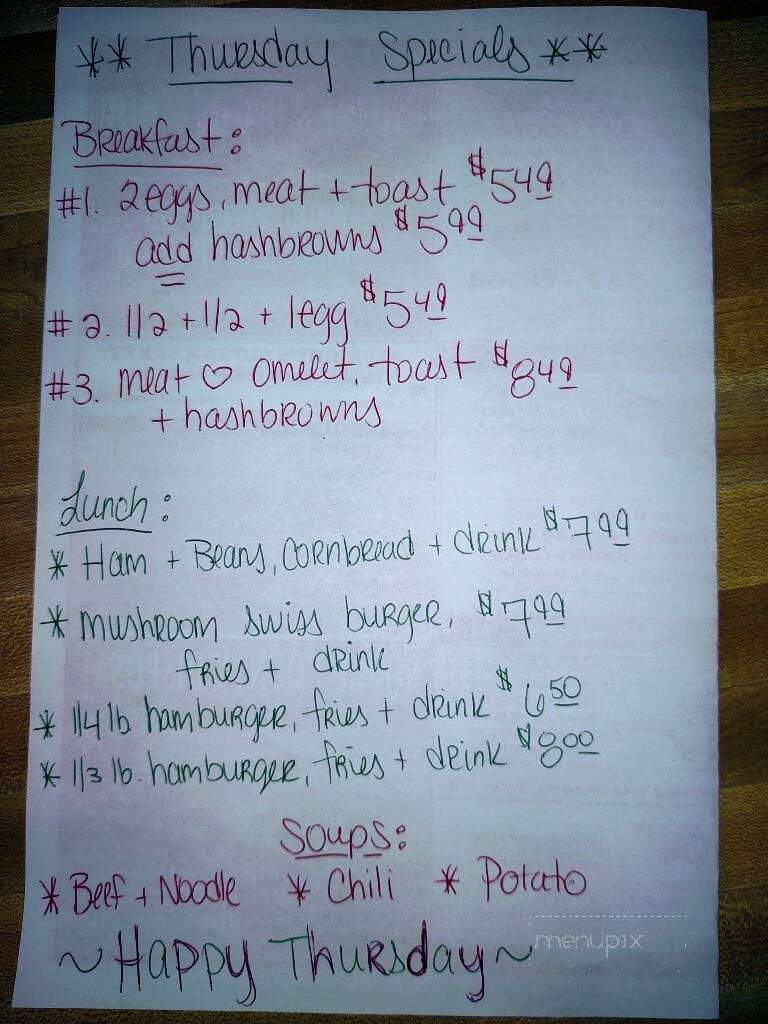 ** Thursday Specials **
Breakfast:
#1. 2 eggs, meat + toast $5.49
add hashbrowns $5.99
#2. 1/2 + 1/2 + 1 egg $5.49
#3. meat ♡ omelet, toast $8.49
+ hashbrowns
Lunch:
* Ham + Beans, cornbread + drink $7.99
* mushroom swiss burger, $7.99
fries + drink
* 1/4 lb. hamburger, fries + drink $6.50
* 1/3 lb. hamburger, fries + drink $8.00
Soups:
* Beef + Noodle * Chili * Potato
~Happy Thursday~
menupix